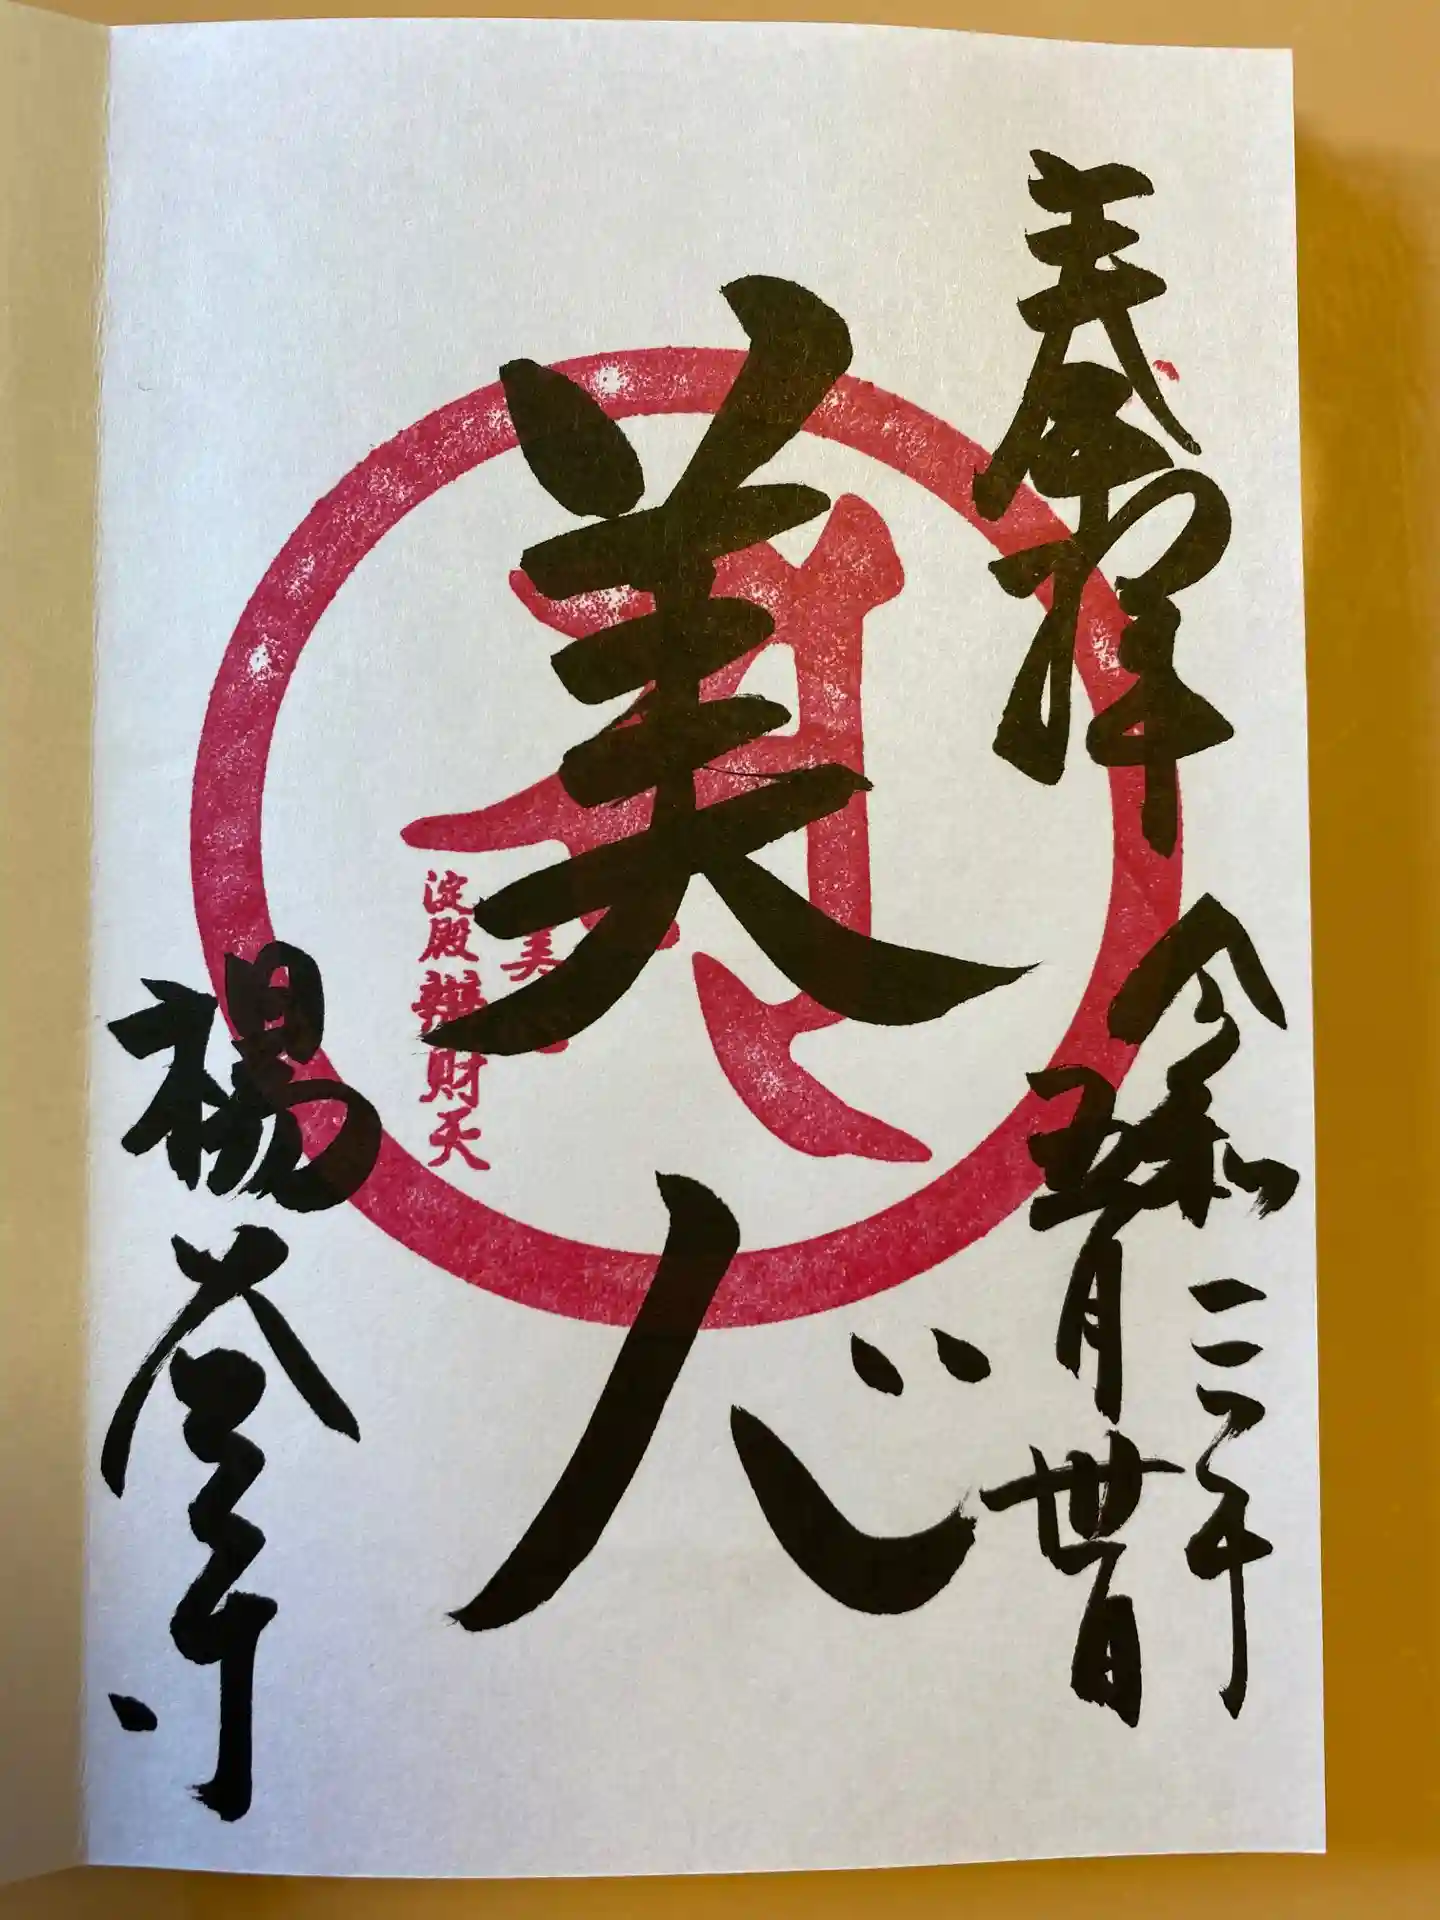 奉拝
令和三年
五月丗日
美人
美人
淀殿辨財天
楊谷寺